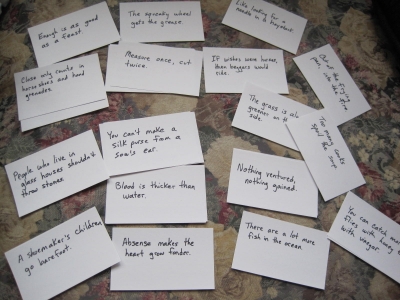 Enough is as good
as a feast.
The squeaky wheel
gets the grease.
Like looking for a
needle in a haystack.
Close only counts in
horseshoes and hand
grenades.
Measure once, cut
twice.
If wishes were horses,
then beggars would
ride.
Out of the frying
pan, into the fire
The grass is
greener on
side.
Too many cooks
spoil the soup
People who live in
glass houses shouldn't
throw stones.
You can't make a
silk purse from a
sow's ear.
Blood is thicker than
water.
Nothing ventured,
nothing gained.
A shoemaker's children
go barefoot.
Absense makes the
heart grow fonder.
There are a lot more
fish in the ocean.
You can catch
flies with honey
with vinegar.